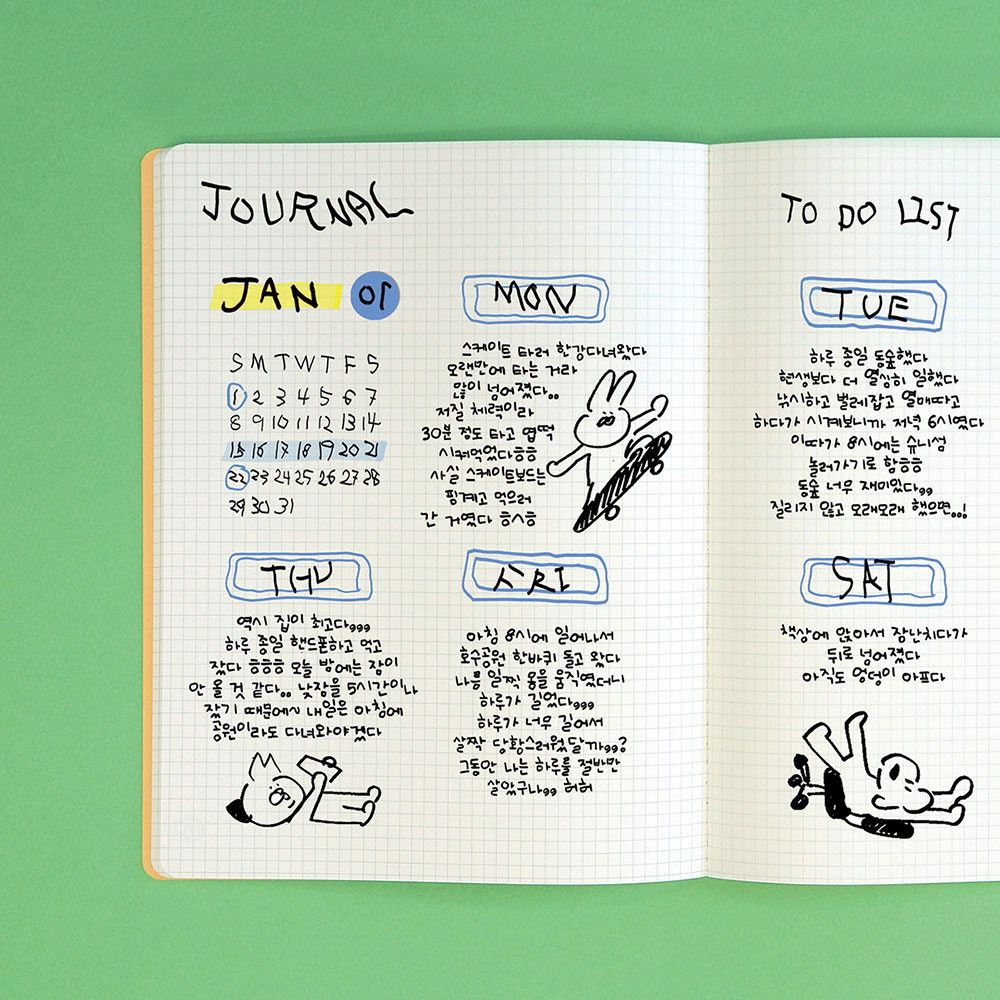 JOURNAL
JAN 01
S M T W T F S
1 2 3 4 5 6 7
8 9 10 11 12 13 14
15 16 17 18 19 20 21
22 23 24 25 26 27 28
29 30 31
MON
스케이트 타러 한강다녀왔다
오랜만에 타는 거라
많이 넘어졌다..
저질 체력이라
30분 정도 타고 엽떡
시켜먹었다ㅎㅎ
사실 스케이트보드는
핑계고 먹으러
간 거였다 ㅎㅅㅎ
THU
역시 집이 최고다,,,
하루 종일 핸드폰하고 먹고
잤다 ㅎㅎㅎ 오늘 밤에는 잠이
안 올 것 같다.. 낮잠을 5시간이나
잤기 때문에~ 내일은 아침에
공원이라도 다녀와야겠다
FRI
아침 8시에 일어나서
호수공원 한바퀴 돌고 왔다
나름 일찍 몸을 움직였더니
하루가 길었다,,,
하루가 너무 길어서
살짝 당황스러웠달까,,?
그동안 나는 하루를 절반만
살았구나,, 허허
TO DO LIST
TUE
하루 종일 동숲했다
현생보다 더 열심히 일했다
낚시하고 벌레잡고 열매따고
하다가 시계보니까 저녁 6시였다
이따가 8시에는 슈니섬
놀러가기로 함ㅎㅎ
동숲 너무 재미있다,,
질리지 않고 오래오래 했으면..!
SAT
책상에 앉아서 장난치다가
뒤로 넘어졌다
아직도 엉덩이 아프다